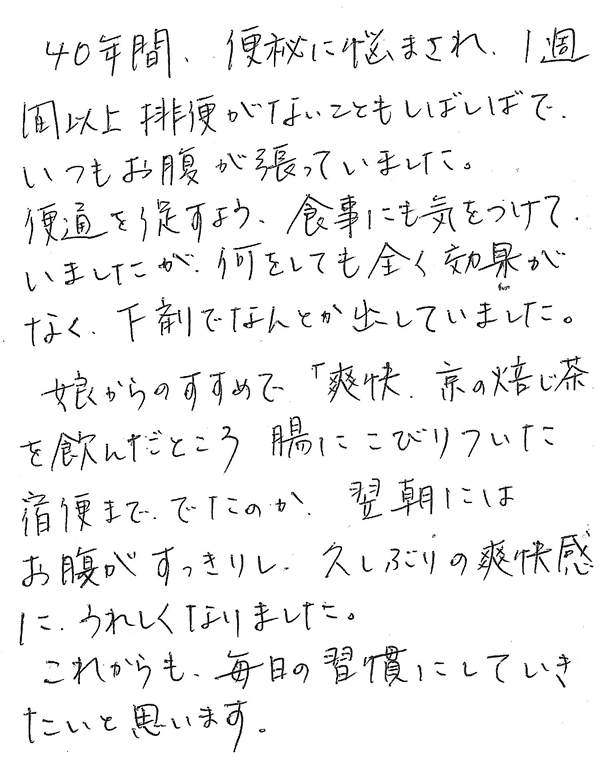 40年間、便秘に悩まされ、1週
間以上排便がないこともしばしばで、
いつもお腹が張っていました。
便通を促すよう、食事にも気をつけて、
いましたが、何をしても全く効果が
なく、下剤でなんとか出していました。
娘からのすすめで「爽快、京の焙じ茶
を飲んだところ 腸にこびりついた
宿便まで、でたのか、翌朝には
お腹がすっきりし、久しぶりの爽快感
に、うれしくなりました。
これからも、毎日の習慣にしていき
たいと思います。